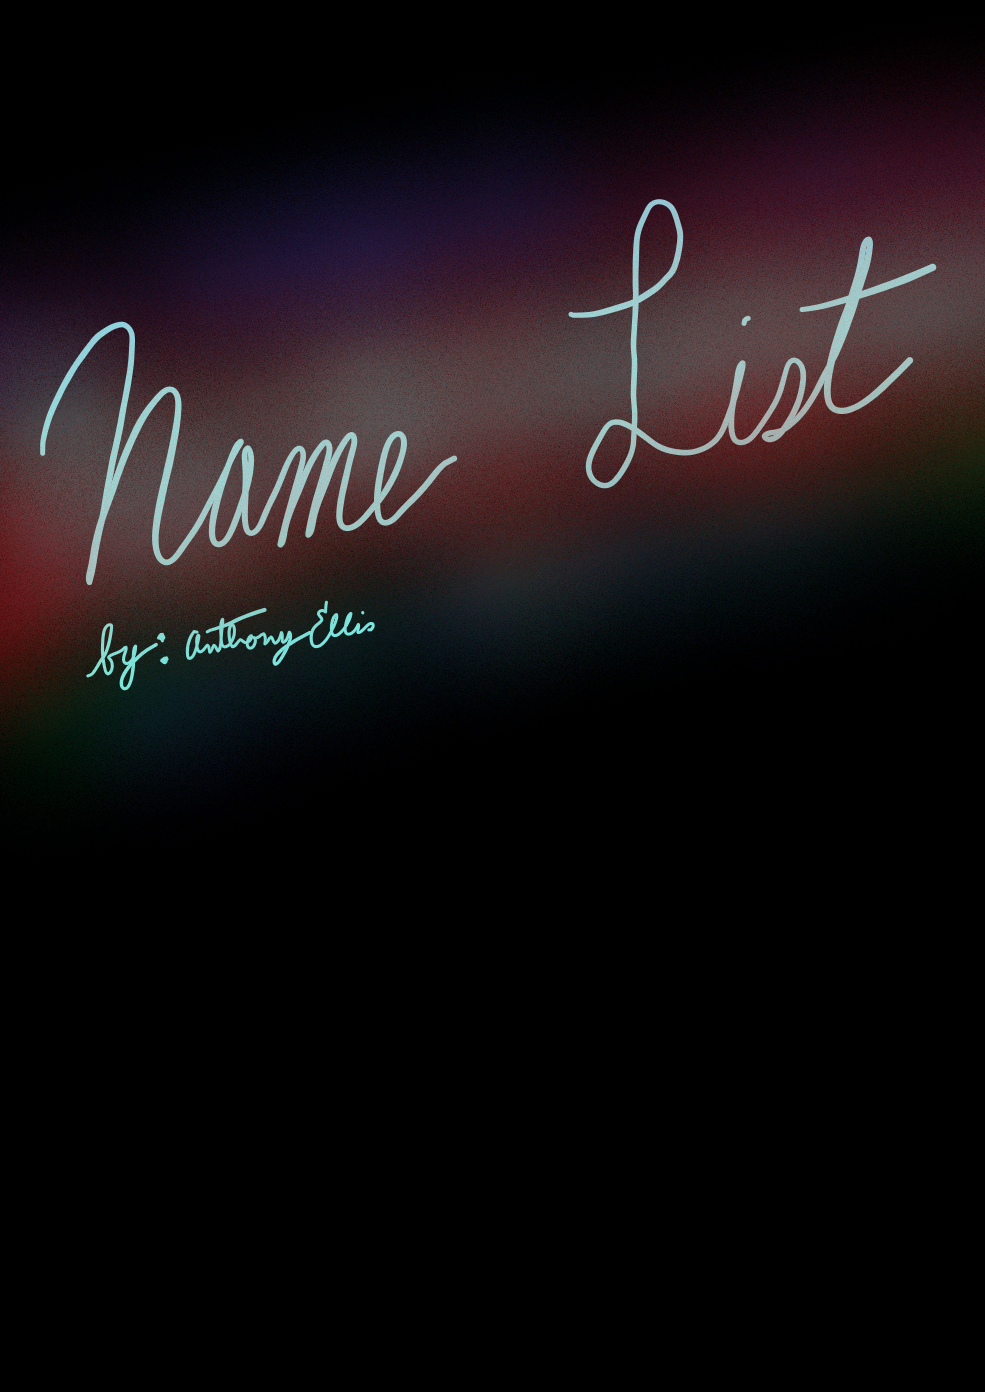 Name List
by: Anthony Ellis